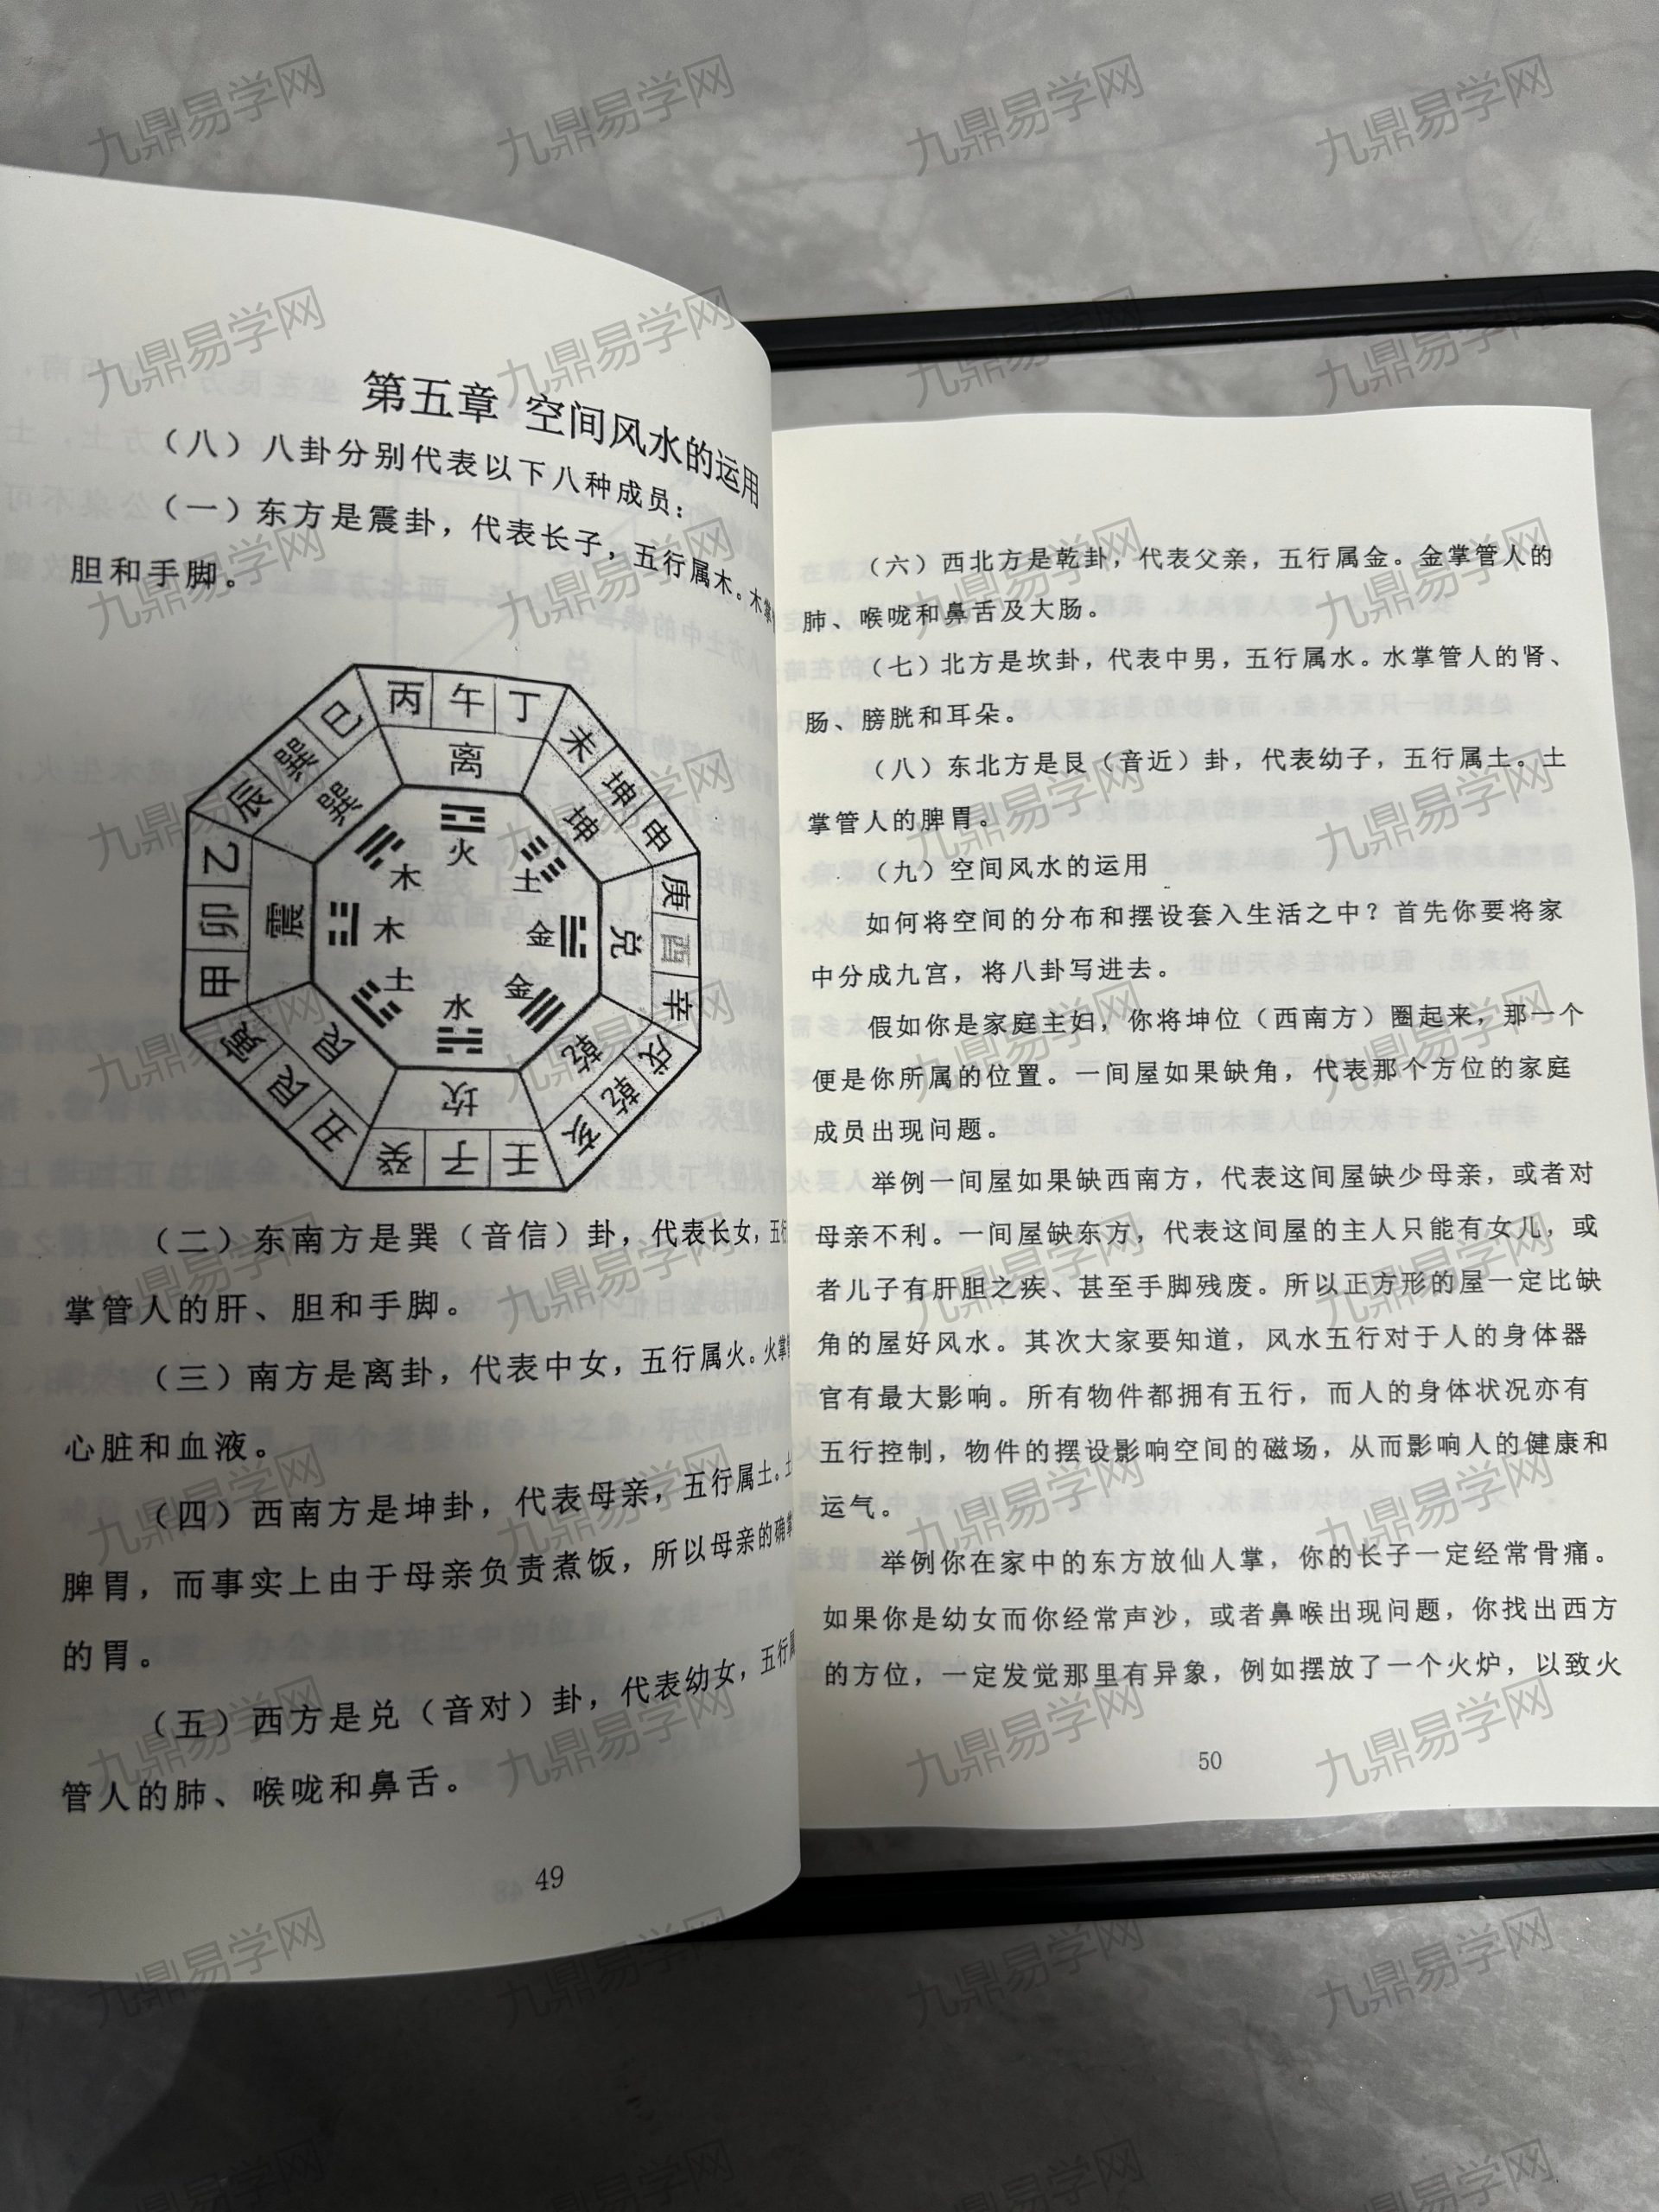 第五章 空间风水的运用
（八）八卦分别代表以下八种成员：
（一）东方是震卦，代表长子，五行属木。木掌
胆和手脚。
丙 午 丁
未 坤 申
庚 酉 辛
戌 乾 亥
壬 子 癸
丑 艮 寅
甲 卯 乙
辰 巽 巳
离
坤
兑
乾
坎
艮
震
巽
火
土
金
金
水
土
木
木
（二）东南方是巽（音信）卦，代表长女，五行
掌管人的肝、胆和手脚。
（三）南方是离卦，代表中女，五行属火。火掌
心脏和血液。
（四）西南方是坤卦，代表母亲，五行属土。土
脾胃，而事实上由于母亲负责煮饭，所以母亲的确掌
的胃。
（五）西方是兑（音对）卦，代表幼女，五行属
管人的肺、喉咙和鼻舌。
49
（六）西北方是乾卦，代表父亲，五行属金。金掌管人的
肺、喉咙和鼻舌及大肠。
（七）北方是坎卦，代表中男，五行属水。水掌管人的肾、
肠、膀胱和耳朵。
（八）东北方是艮（音近）卦，代表幼子，五行属土。土
掌管人的脾胃。
（九）空间风水的运用
如何将空间的分布和摆设套入生活之中？首先你要将家
中分成九宫，将八卦写进去。
假如你是家庭主妇，你将坤位（西南方）圈起来，那一个
便是你所属的位置。一间屋如果缺角，代表那个方位的家庭
成员出现问题。
举例一间屋如果缺西南方，代表这间屋缺少母亲，或者对
母亲不利。一间屋缺东方，代表这间屋的主人只能有女儿，或
者儿子有肝胆之疾、甚至手脚残废。所以正方形的屋一定比缺
角的屋好风水。其次大家要知道，风水五行对于人的身体器
官有最大影响。所有物件都拥有五行，而人的身体状况亦有
五行控制，物件的摆设影响空间的磁场，从而影响人的健康和
运气。
举例你在家中的东方放仙人掌，你的长子一定经常骨痛。
如果你是幼女而你经常声沙，或者鼻喉出现问题，你找出西方
的方位，一定发觉那里有异象，例如摆放了一个火炉，以致火
50
九鼎易学网